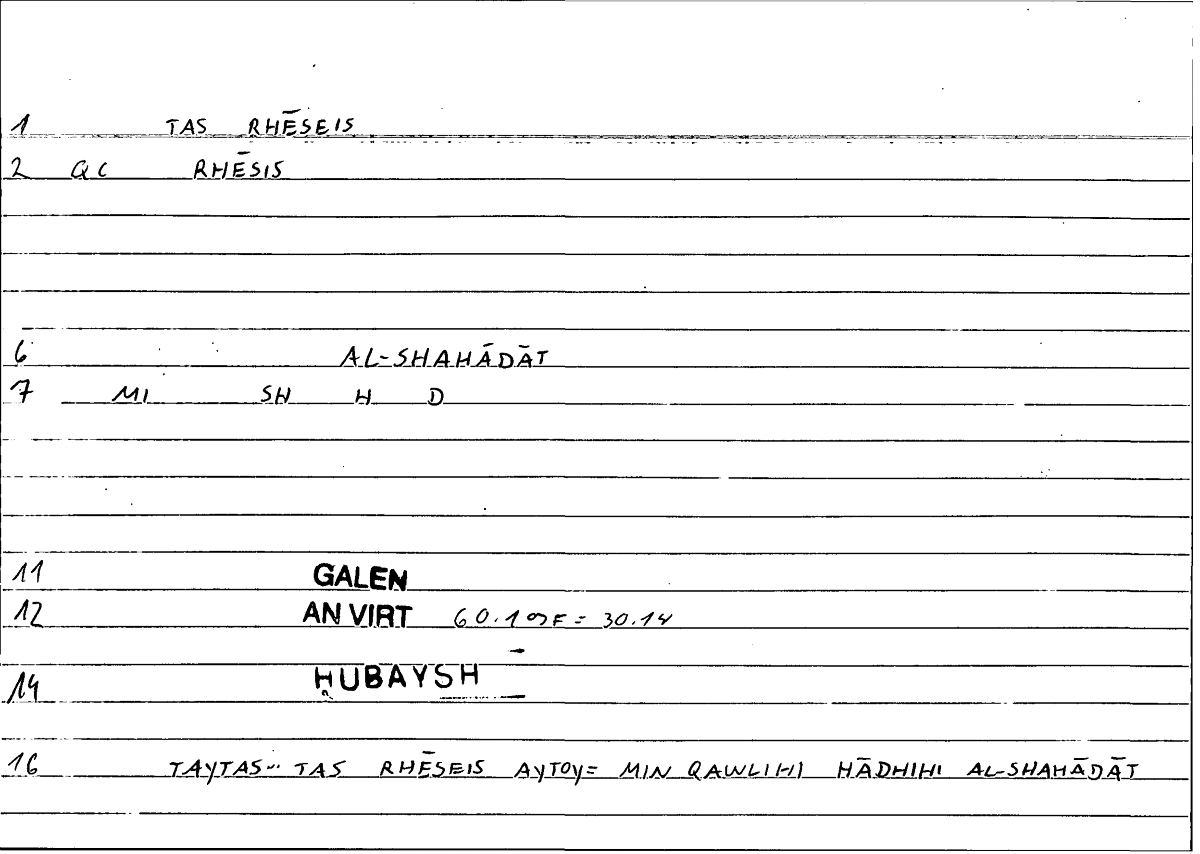 1 TAS RHĒSEIS
2 QC RHĒSIS
6 AL-SHAHĀDĀT
7 MI SH H D
11 GALEN
12 AN VIRT 60.10 = 30.14
14 ḤUBAYSH
16 TAYTAS.. TAS RHĒSEIS AYTOY= MIN QAWLIHI HĀDHIHI AL-SHAHĀDĀT